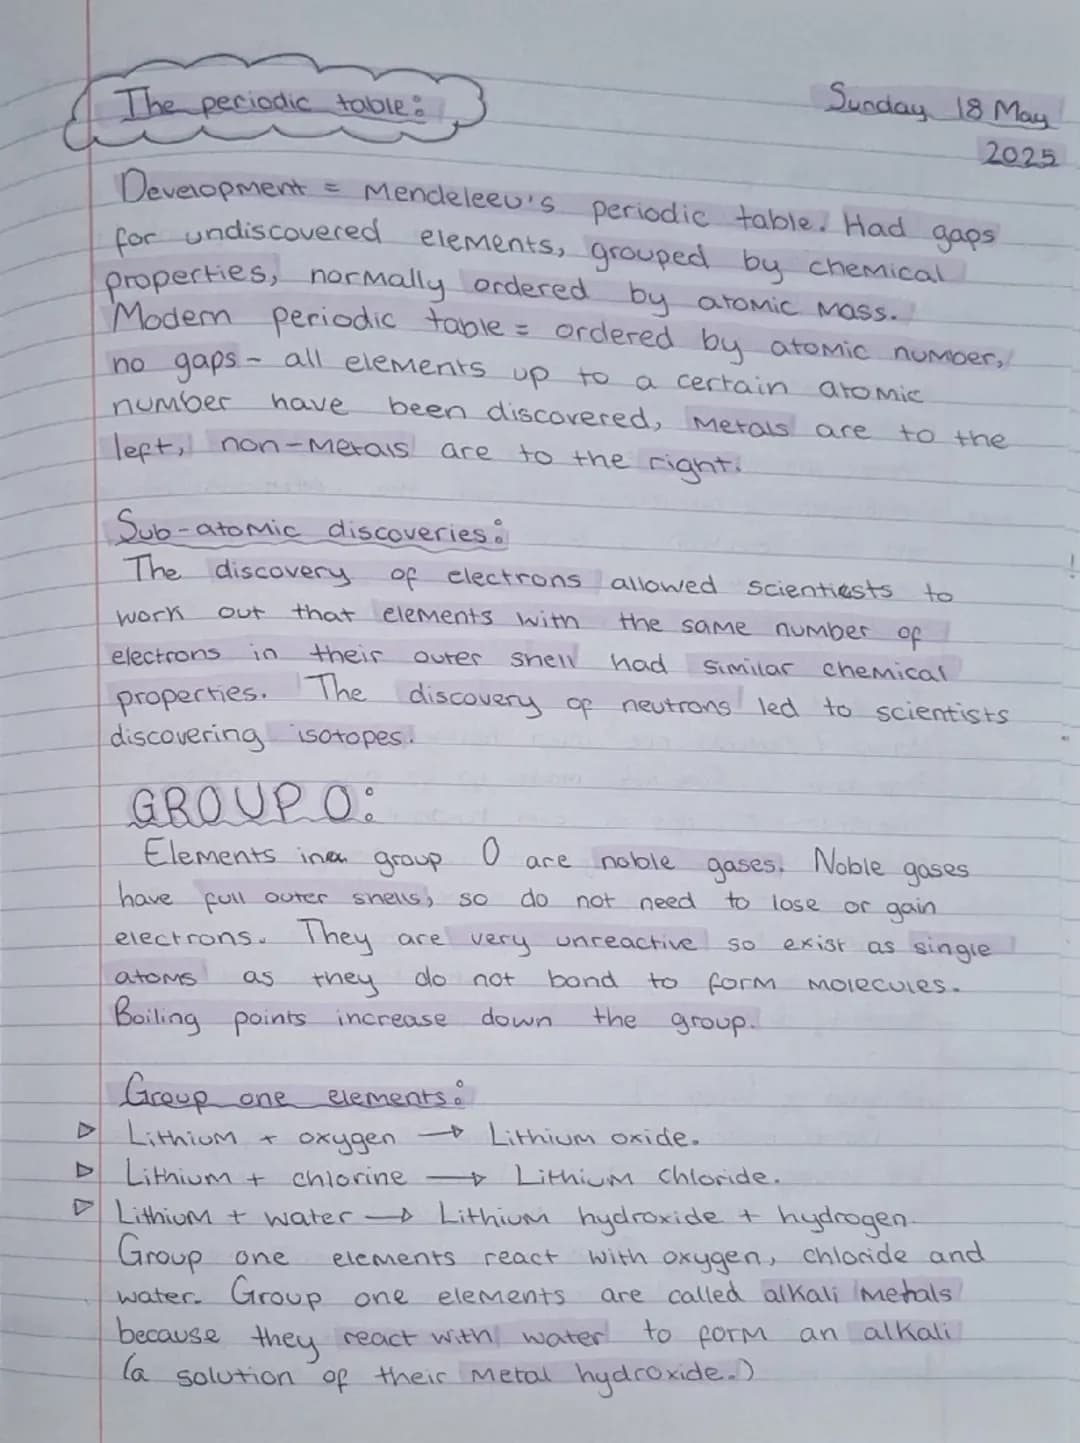 The periodic table:
Sunday 18 May
2025
Development = Mendeleev's periodic table. Had gaps
for undiscovered elements, grouped by chemical
properties, normally ordered by atomic mass.
Modern periodic table = ordered by atomic number,
no gaps - all elements up to a certain atomic
number have been discovered, Metals are to the
left, non-metals are to the right.
Sub-atomic discoveries:
The discovery of electrons allowed scientiests to
work out that elements with the same number of
electrons in their outer shell had similar chemical
properties. The discovery of neutrons led to scientists
discovering isotopes.
GROUP 0:
Elements in group 0 are noble gases. Noble gases
have full outer shells, so do not need to lose or gain
electrons. They are very unreactive so exist as single
atoms as they do not bond to form molecules.
Boiling points increase down the group.
Group one elements:
▷ Lithium + oxygen → Lithium oxide.
▷ Lithium + chlorine → Lithium chloride.
▷ Lithium + water → Lithium hydroxide + hydrogen.
Group one elements react with oxygen, chloride and
water. Group one elements are called alkali metals
because they react with water to form an alkali
(a solution of their metal hydroxide.)